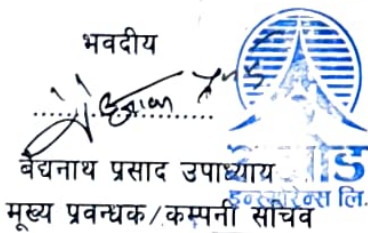 भवदीय
बैद्यनाथ प्रसाद उपाध्याय
मुख्य प्रवन्धक/कम्पनी सचिव
इन्स्योरेन्स लि.